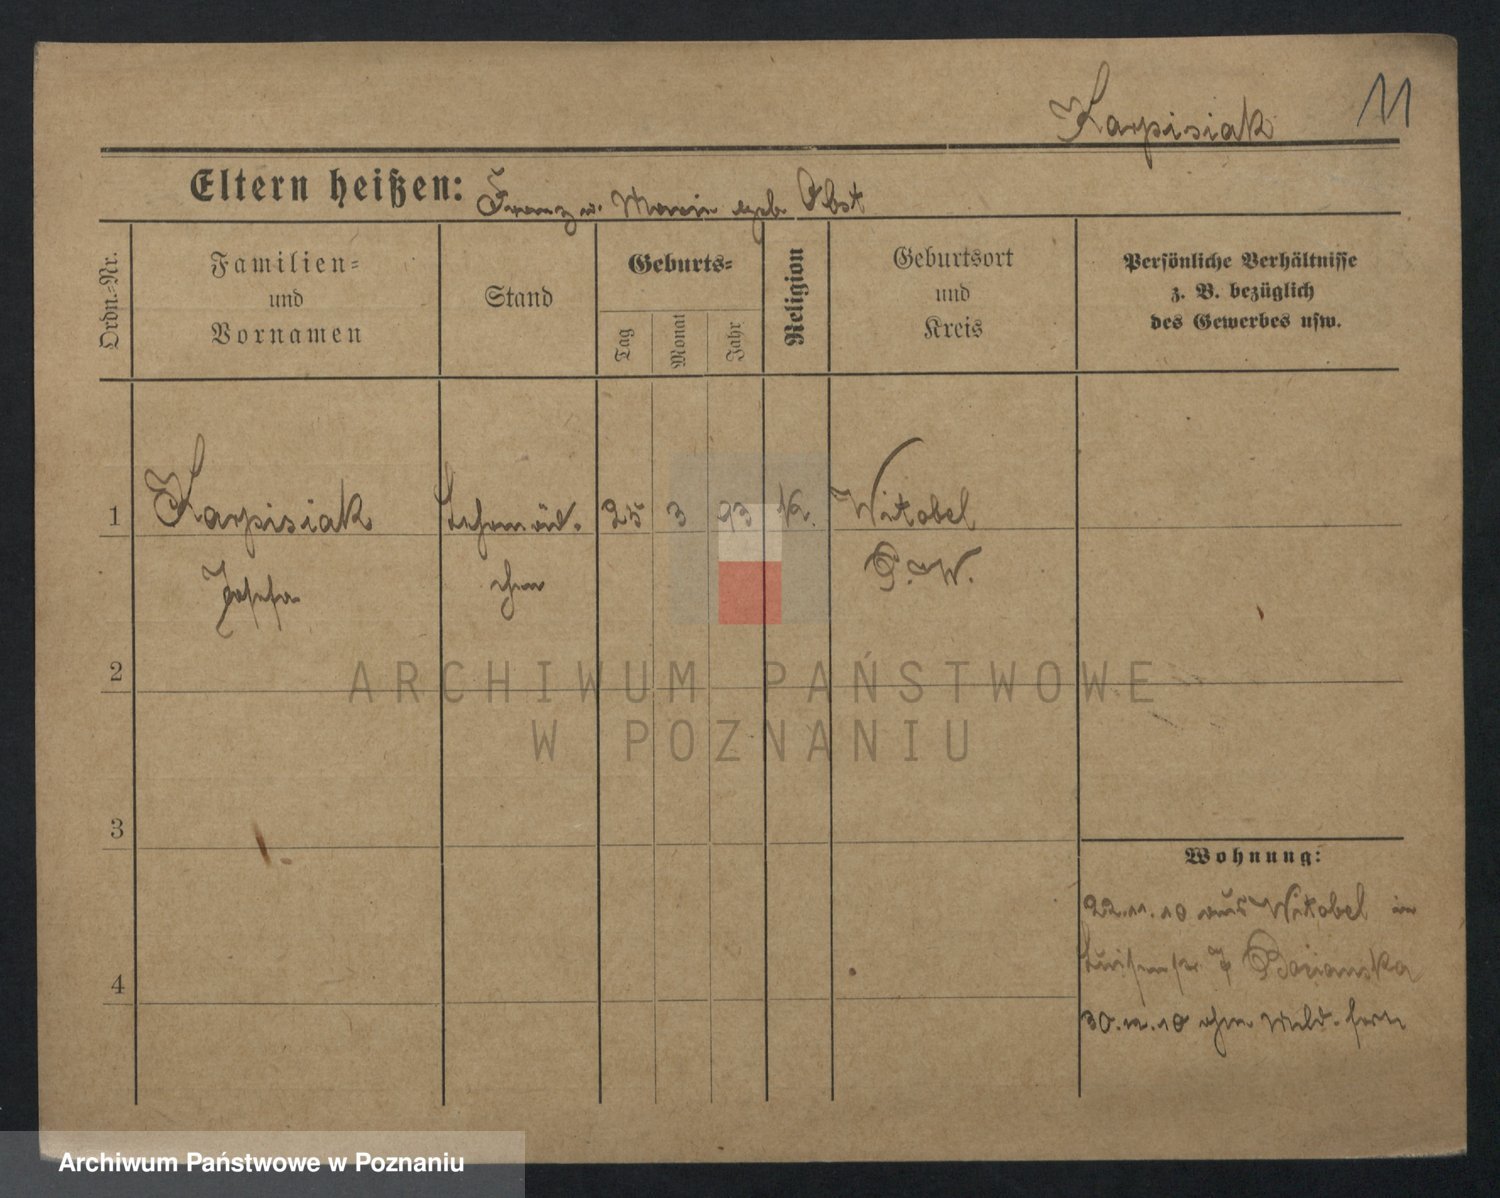 Karpisiak 11
Eltern heißen: Franz u. Marie geb. Obst
Ordn.-Nr.
Familien-
und
Vornamen
Stand
Geburts-
Tag
Monat
Jahr
Religion
Geburtsort
und
Kreis
Persönliche Verhältnisse
z. B. bezüglich
des Gewerbes usw.
1 Karpisiak Lehrmäd- 25 3 93 K. Witobel
Josefa chen P. W.
2
3
4
Wohnung:
22.11.10 aus Witobel in
Luisenstr 7
30.12.10 ohne Meld. fort
ARCHIWUM PAŃSTWOWE
W POZNANIU
Archiwum Państwowe w Poznaniu